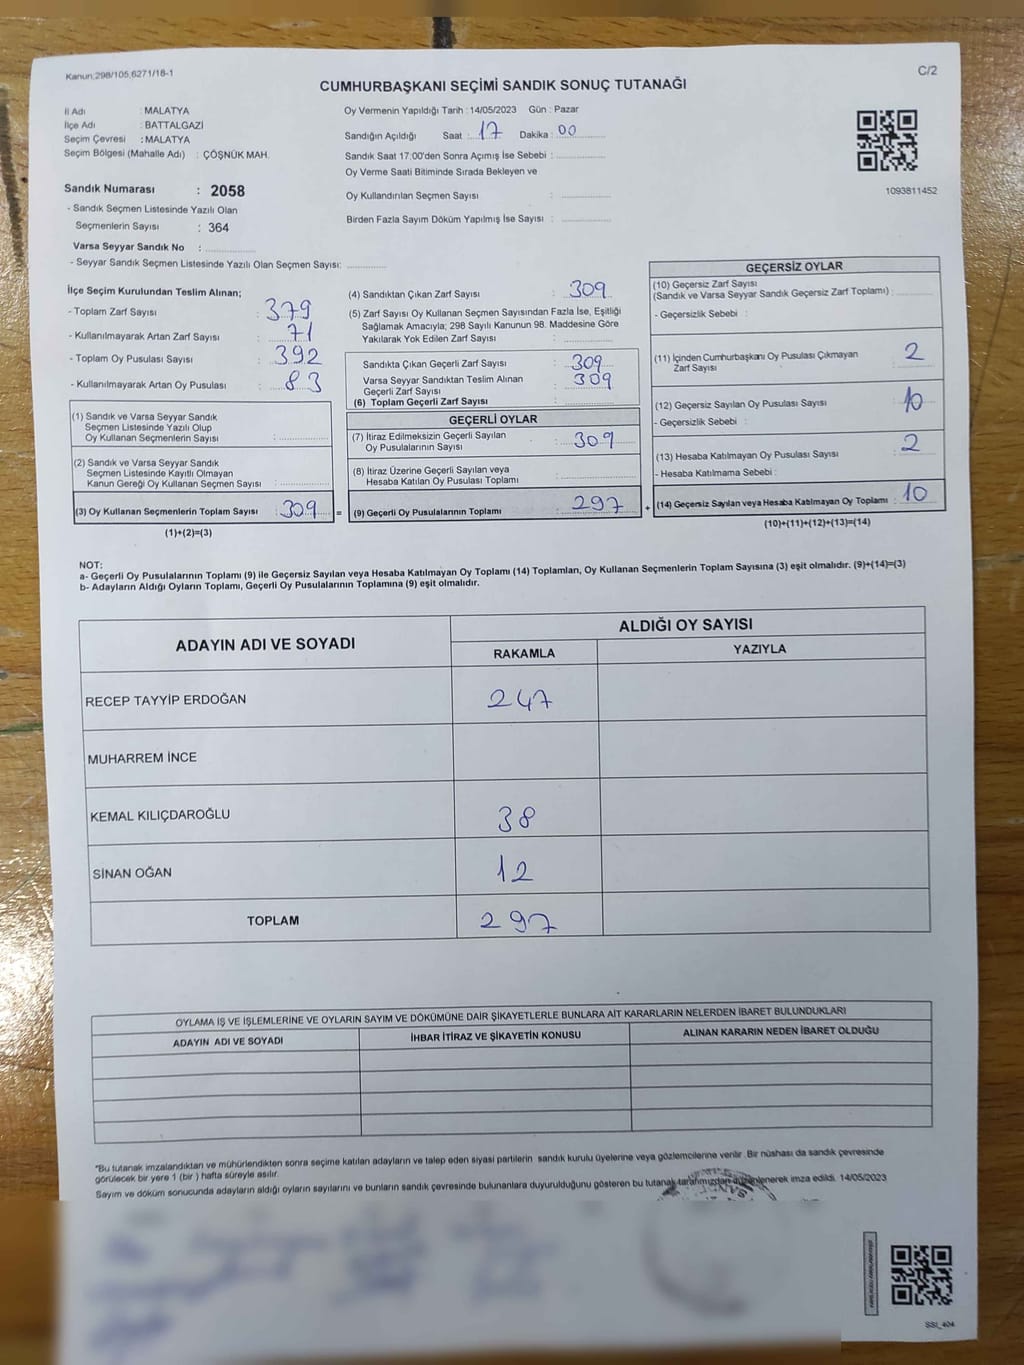 Kanun:298/105,6271/18-1
C/2
CUMHURBAŞKANI SEÇİMİ SANDIK SONUÇ TUTANAĞI
İl Adı : MALATYA
İlçe Adı : BATTALGAZİ
Seçim Çevresi : MALATYA
Seçim Bölgesi (Mahalle Adı) : ÇÖŞNÜK MAH.
Sandık Numarası : 2058
- Sandık Seçmen Listesinde Yazılı Olan
Seçmenlerin Sayısı : 364
Varsa Seyyar Sandık No :
- Seyyar Sandık Seçmen Listesinde Yazılı Olan Seçmen Sayısı:
Oy Vermenin Yapıldığı Tarih :14/05/2023 Gün : Pazar
Sandığın Açıldığı Saat : 17 Dakika : 00
Sandık Saat 17:00'den Sonra Açımış İse Sebebi :
Oy Verme Saati Bitiminde Sırada Bekleyen ve
Oy Kullandırılan Seçmen Sayısı :
Birden Fazla Sayım Döküm Yapılmış İse Sayısı :
1093811452
İlçe Seçim Kurulundan Teslim Alınan;
- Toplam Zarf Sayısı : 379
- Kullanılmayarak Artan Zarf Sayısı : 71
- Toplam Oy Pusulası Sayısı : 392
- Kullanılmayarak Artan Oy Pusulası : 83
(1) Sandık ve Varsa Seyyar Sandık
Seçmen Listesinde Yazılı Olup
Oy Kullanan Seçmenlerin Sayısı :
(2) Sandık ve Varsa Seyyar Sandık
Seçmen Listesinde Kayıtlı Olmayan
Kanun Gereği Oy Kullanan Seçmen Sayısı :
(3) Oy Kullanan Seçmenlerin Toplam Sayısı : 309 =
(1)+(2)=(3)
(4) Sandıktan Çıkan Zarf Sayısı : 309
(5) Zarf Sayısı Oy Kullanan Seçmen Sayısından Fazla İse, Eşitliği
Sağlamak Amacıyla; 298 Sayılı Kanunun 98. Maddesine Göre
Yakılarak Yok Edilen Zarf Sayısı :
Sandıkta Çıkan Geçerli Zarf Sayısı : 309
Varsa Seyyar Sandıktan Teslim Alınan : 309
Geçerli Zarf Sayısı
(6) Toplam Geçerli Zarf Sayısı :
GEÇERLİ OYLAR
(7) İtiraz Edilmeksizin Geçerli Sayılan
Oy Pusulalarının Sayısı : 309
(8) İtiraz Üzerine Geçerli Sayılan veya
Hesaba Katılan Oy Pusulası Toplamı :
(9) Geçerli Oy Pusulalarının Toplamı : 297 +
GEÇERSİZ OYLAR
(10) Geçersiz Zarf Sayısı
(Sandık ve Varsa Seyyar Sandık Geçersiz Zarf Toplamı) :
- Geçersizlik Sebebi :
(11) İçinden Cumhurbaşkanı Oy Pusulası Çıkmayan : 2
Zarf Sayısı
(12) Geçersiz Sayılan Oy Pusulası Sayısı : 10
- Geçersizlik Sebebi :
(13) Hesaba Katılmayan Oy Pusulası Sayısı : 2
- Hesaba Katılmama Sebebi :
(14) Geçersiz Sayılan veya Hesaba Katılmayan Oy Toplamı : 10
(10)+(11)+(12)+(13)=(14)
NOT:
a- Geçerli Oy Pusulalarının Toplamı (9) ile Geçersiz Sayılan veya Hesaba Katılmayan Oy Toplamı (14) Toplamları, Oy Kullanan Seçmenlerin Toplam Sayısına (3) eşit olmalıdır. (9)+(14)=(3)
b- Adayların Aldığı Oyların Toplamı, Geçerli Oy Pusulalarının Toplamına (9) eşit olmalıdır.
ADAYIN ADI VE SOYADI
ALDIĞI OY SAYISI
RAKAMLA YAZIYLA
RECEP TAYYİP ERDOĞAN 247
MUHARREM İNCE
KEMAL KILIÇDAROĞLU 38
SİNAN OĞAN 12
TOPLAM 297
OYLAMA İŞ VE İŞLEMLERİNE VE OYLARIN SAYIM VE DÖKÜMÜNE DAİR ŞİKAYETLERLE BUNLARA AİT KARARLARIN NELERDEN İBARET BULUNDUKLARI
ADAYIN ADI VE SOYADI İHBAR İTİRAZ VE ŞİKAYETİN KONUSU ALINAN KARARIN NEDEN İBARET OLDUĞU
*Bu tutanak imzalandıktan ve mühürlendikten sonra seçime katılan adayların ve talep eden siyasi partilerin sandık kurulu üyelerine veya gözlemcilerine verilir. Bir nüshası da sandık çevresinde
görülecek bir yere 1 (bir ) hafta süreyle asılır.
Sayım ve döküm sonucunda adayların aldığı oyların sayılarını ve bunların sandık çevresinde bulunanlara duyurulduğunu gösteren bu tutanak tarafımızdan düzenlenerek imza edildi. 14/05/2023
SSI_404